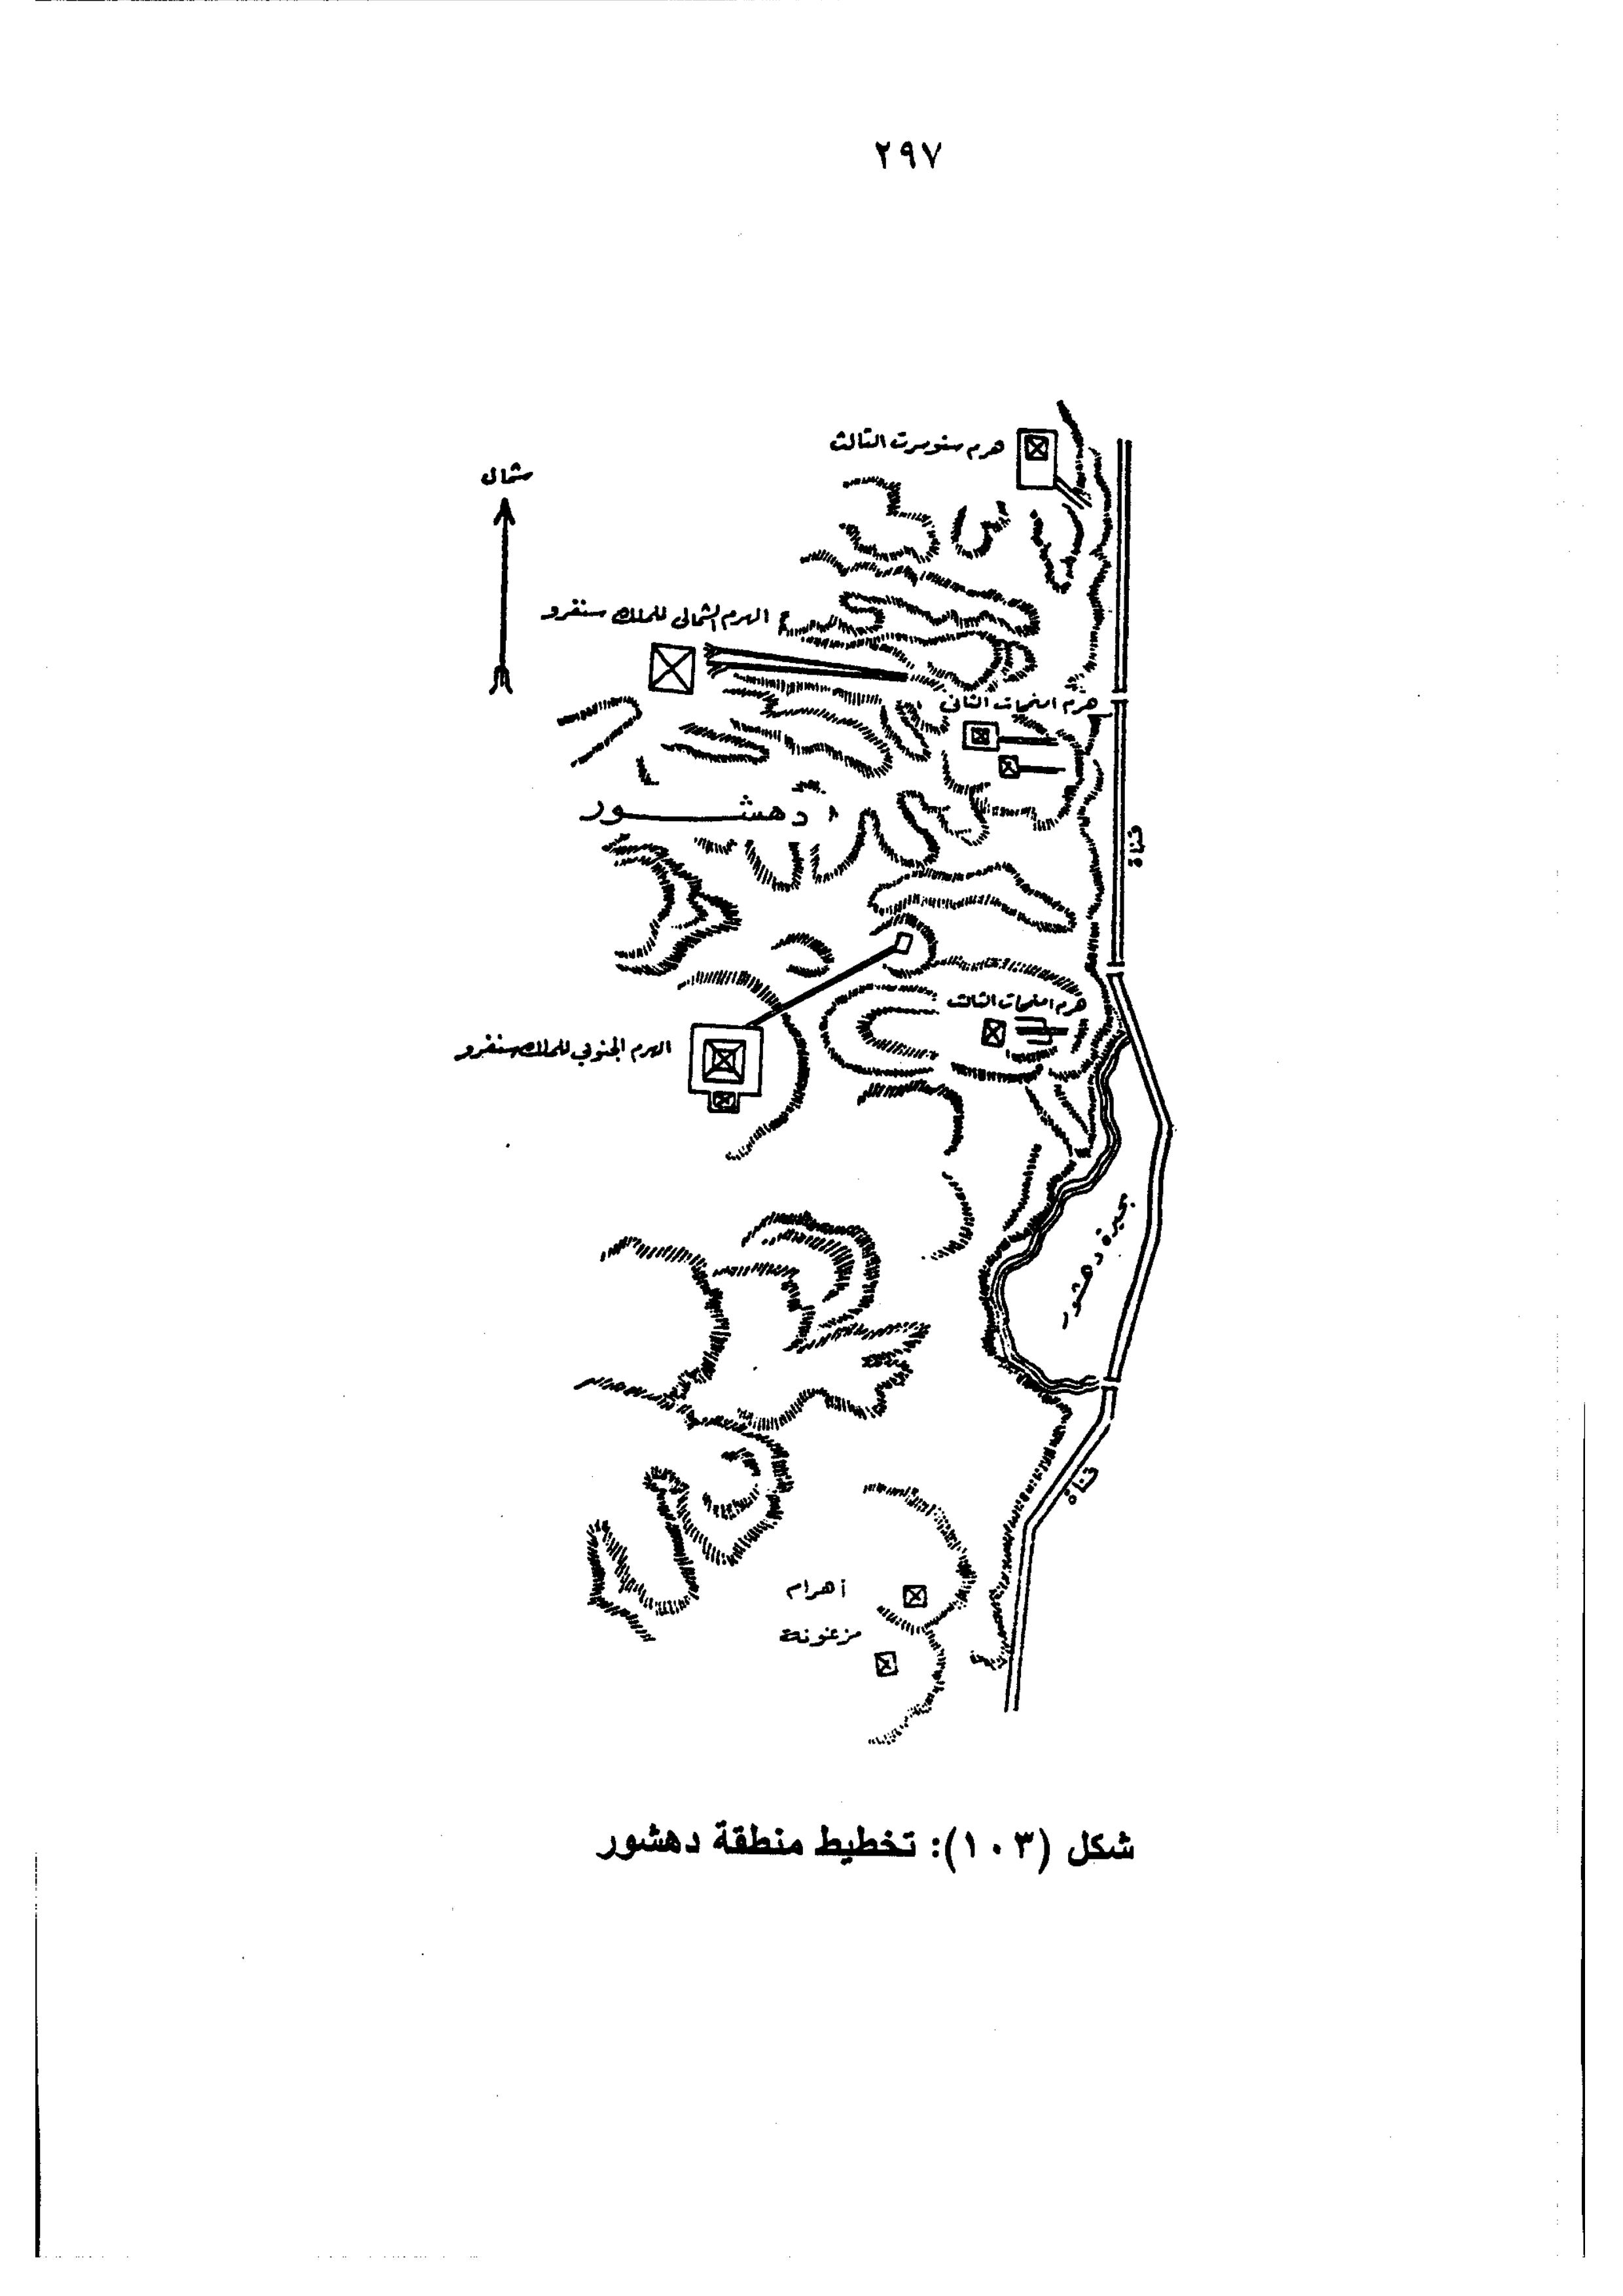 ٢٩٧
هرم سنوسرت الثالث
شمال
الهرم الشمالى للملك سنفرو
هرم امنمحات الثانى
دهشـــــور
قناة
هرم امنمحات الثالث
الهرم الجنوبي للملك سنفرو
بحيرة دهشور
قناة
أهرام
مزغونة
شكل (١٠٣): تخطيط منطقة دهشور